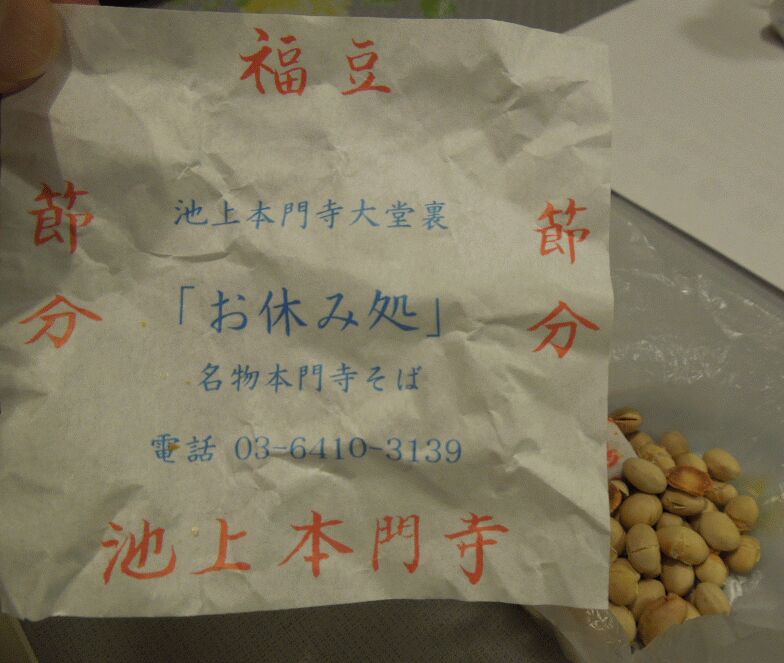 福豆
節分
節分
池上本門寺大堂裏
「お休み処」
名物本門寺そば
電話 03-6410-3139
池上本門寺